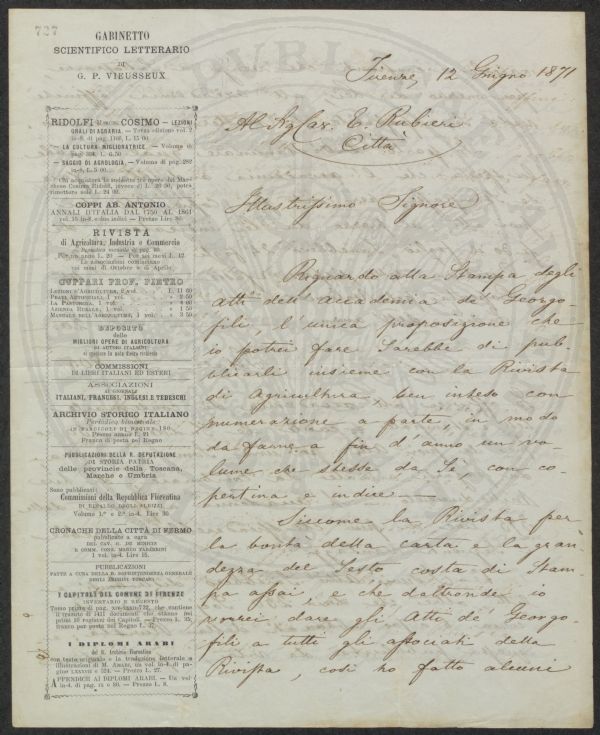 727
GABINETTO
SCIENTIFICO LETTERARIO
DI
G. P. VIEUSSEUX
RIDOLFI March. COSIMO — LEZIONI
ORALI DI AGRARIA — Terza edizione vol. 2
in-8. di pag. 1108, L. 15 00
— LA CULTURA MIGLIORATRICE — Volume di
pag. 394, L. 6 50
— SAGGIO DI AGROLOGIA — Volume di pag. 282
in-8. L. 5 00
Chi acquisterà le suddette tre opere del Mar-
chese Cosimo Ridolfi, invece di L. 26 50, potrà
rimettere sole L. 24 00.
COPPI AB. ANTONIO
ANNALI D'ITALIA DAL 1750 AL 1861
vol. 15 in-8. e due indici — Prezzo Lire
RIVISTA
di Agricoltura, Industria e Commercio
Periodico mensile di pag. 80.
Per un anno L. 20 — Per sei mesi L. 12
Le associazioni cominciano
coi mesi di Ottobre e di Aprile
CUPPARI PROF. PIETRO
LEZIONI D'AGRICOLTURA, 2 vol. . . L. 11 60
PRATI ARTIFICIALI, 1 vol. . . . » 2 50
LA PANTONOMIA, 1 vol. . . . » 6
AZIENDA RURALE, 1 vol. . . . » 1 50
MANUALE DELL'AGRICOLTORE, 1 vol. . » 3 50
DEPOSITO
delle
MIGLIORI OPERE DI AGRICOLTURA
DI AUTORI ITALIANI
si spedisce la nota dietro richiesta
COMMISSIONI
DI LIBRI ITALIANI ED ESTERI
ASSOCIAZIONI
AI GIORNALI
ITALIANI, FRANCESI, INGLESI E TEDESCHI
ARCHIVIO STORICO ITALIANO
Periodico bimestrale
IN FASCICOLI DI PAGINE 190
Prezzo annuo L. 21
Franco di posta nel Regno
PUBBLICAZIONI DELLA R. DEPUTAZIONE
DI STORIA PATRIA
delle provincie della Toscana,
Marche e Umbria
Sono pubblicati:
Commissioni della Repubblica Fiorentina
DI RINALDO DEGLI ALBIZZI
Volume 1.º e 2.º in-4. Lire 30
CRONACHE DELLA CITTÀ DI FERMO
pubblicate a cura
DEL CAV. G. DE MINICIS
E COMM. CONS. MARCO TABARRINI
1 vol. in-4. Lire 15.
PUBBLICAZIONI
FATTE A CURA DELLA R. SOPRINTENDENZA GENERALE
DEGLI ARCHIVI TOSCANI
I CAPITOLI DEL COMUNE DI FIRENZE
INVENTARIO E REGESTO
Tomo primo di pag. che contiene
il regesto di 1411 documenti che stanno nei
primi 16 registri dei Capitoli. — Prezzo L. 35,
franco per posta nel Regno L. 37.
I DIPLOMI ARABI
del R. Archivio fiorentino
con testo originale e la traduzione letterale e
illustrazioni di M. AMARI, un vol. in-4. di pa-
gine e 524. — Prezzo L. 27.
APPENDICE AI DIPLOMI ARABI. — Un vol.
in-4. di pag. e 86. — Prezzo L. 8.
Firenze, 12 Giugno 1871
Al Sig Cav. E. Rubieri
Città
Illustrissimo Signore
Riguardo alla stampa degli
Atti dell'Accademia de' Georgo
fili, l'unica proposizione che
io potrei fare sarebbe di pub-
blicarli insieme con la Rivista
di Agricoltura, ben inteso con
numerazione a parte, in modo
da farne a fin d'anno un vo-
lume che stesse da se, con co-
pertina e indice.—
Siccome la Rivista per
la bontà della carta e la gran
dezza del sesto costa di stam
pa assai, e che d'altronde io
vorrei dare gli Atti de' Georgo
fili a tutti gli associati della
Rivista, così ho fatto alcuni